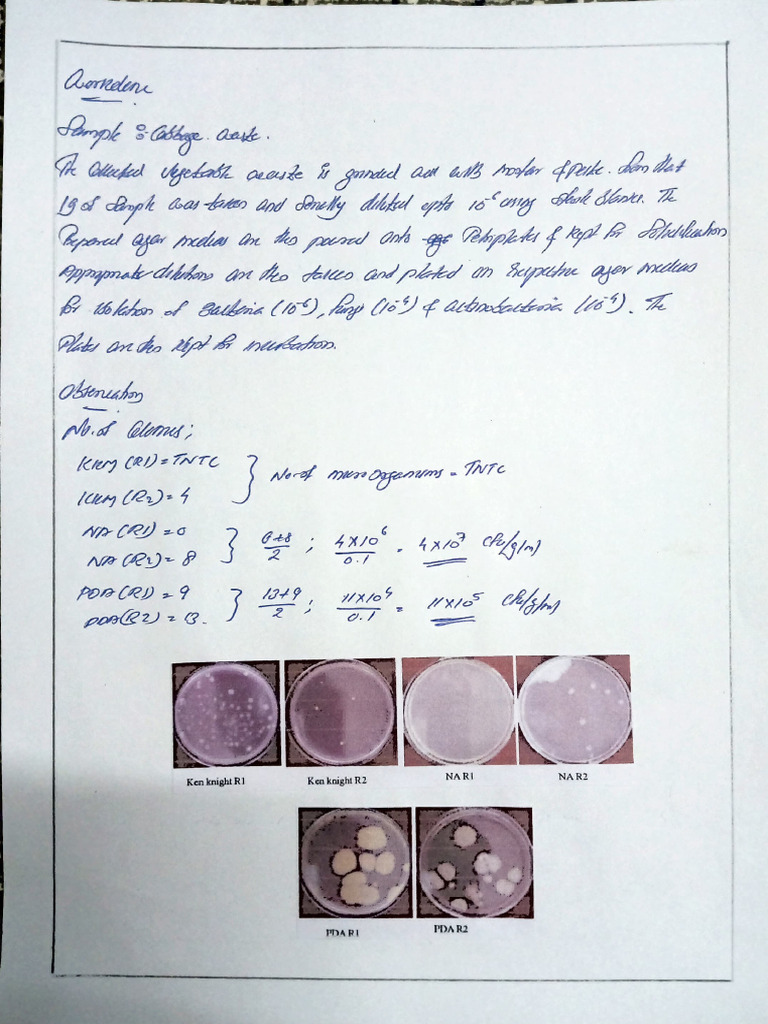 Procedure
Sample :- Cabbage waste.
The collected vegetable waste is grinded out with mortar & pestle. from that
1g of sample was taken and serially diluted upto 10⁻⁶ using blanks. The
Prepared agar medias are then poured onto Petriplates & kept for Solidification
Appropriate dilutions are then taken and plated on respective agar medias
for isolation of Bacteria (10⁻⁶), fungi (10⁻⁴) & actinobacteria (10⁻⁴). The
Plates are then kept for incubation.
Observation
No. of Colonies;
KKM (R1) = TNTC
KKM (R2) = 4
} No. of microorganisms = TNTC
NA (R1) = 0
NA (R2) = 8
} 0+8/2 ; 4×10⁶/0.1 = 4×10⁷ cfu/g/ml
PDA (R1) = 9
PDA (R2) = 13.
} 13+9/2 ; 11×10⁴/0.1 = 11×10⁵ cfu/g/ml
Ken knight R1 Ken knight R2 NA R1 NA R2
PDA R1 PDA R2